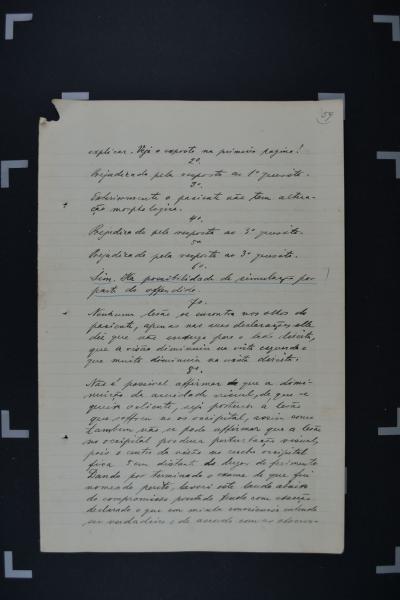 59
explicar. Veja o exposto na primeira pagina!
2º.
Prejudicado pela resposta ao 1º quesito.
3º.
Exteriormente o paciente não tem altera-
ção morphologica.
4º.
Prejudicado pela resposta ao 3º quesito.
5º
Prejudicado pela resposta ao 3º quesito.
6º.
Sim. Ha possibilidade de simulação por
parte do offendido.
7º.
Nenhuma lesão se encontra nos olhos do
paciente, apenas nas suas declarações elle
diz que não enxerga para o lado direito,
que a visão diminuiu na vista esquerda e
que muito diminuiu na vista direita.
8º.
Não é possivel affirmar de que a dimi-
nuição da acuidade visual, de que se
queixa o doente, seja posterior á lesão
que soffreu no occipital, assim como
tambem não se pode affirmar que a lesão
no occipital produza perturbação visual,
pois o centro da visão no cortex occipital
fica 5 cm distante do lugar do ferimento.
Dando por terminado o exame de que fui
nomeado perito, lavrei este laudo abaixo
do compromisso prestado, tendo com isenção
declarado o que em minha consciencia entendo
ser verdadeiro e de accordo com as observa-